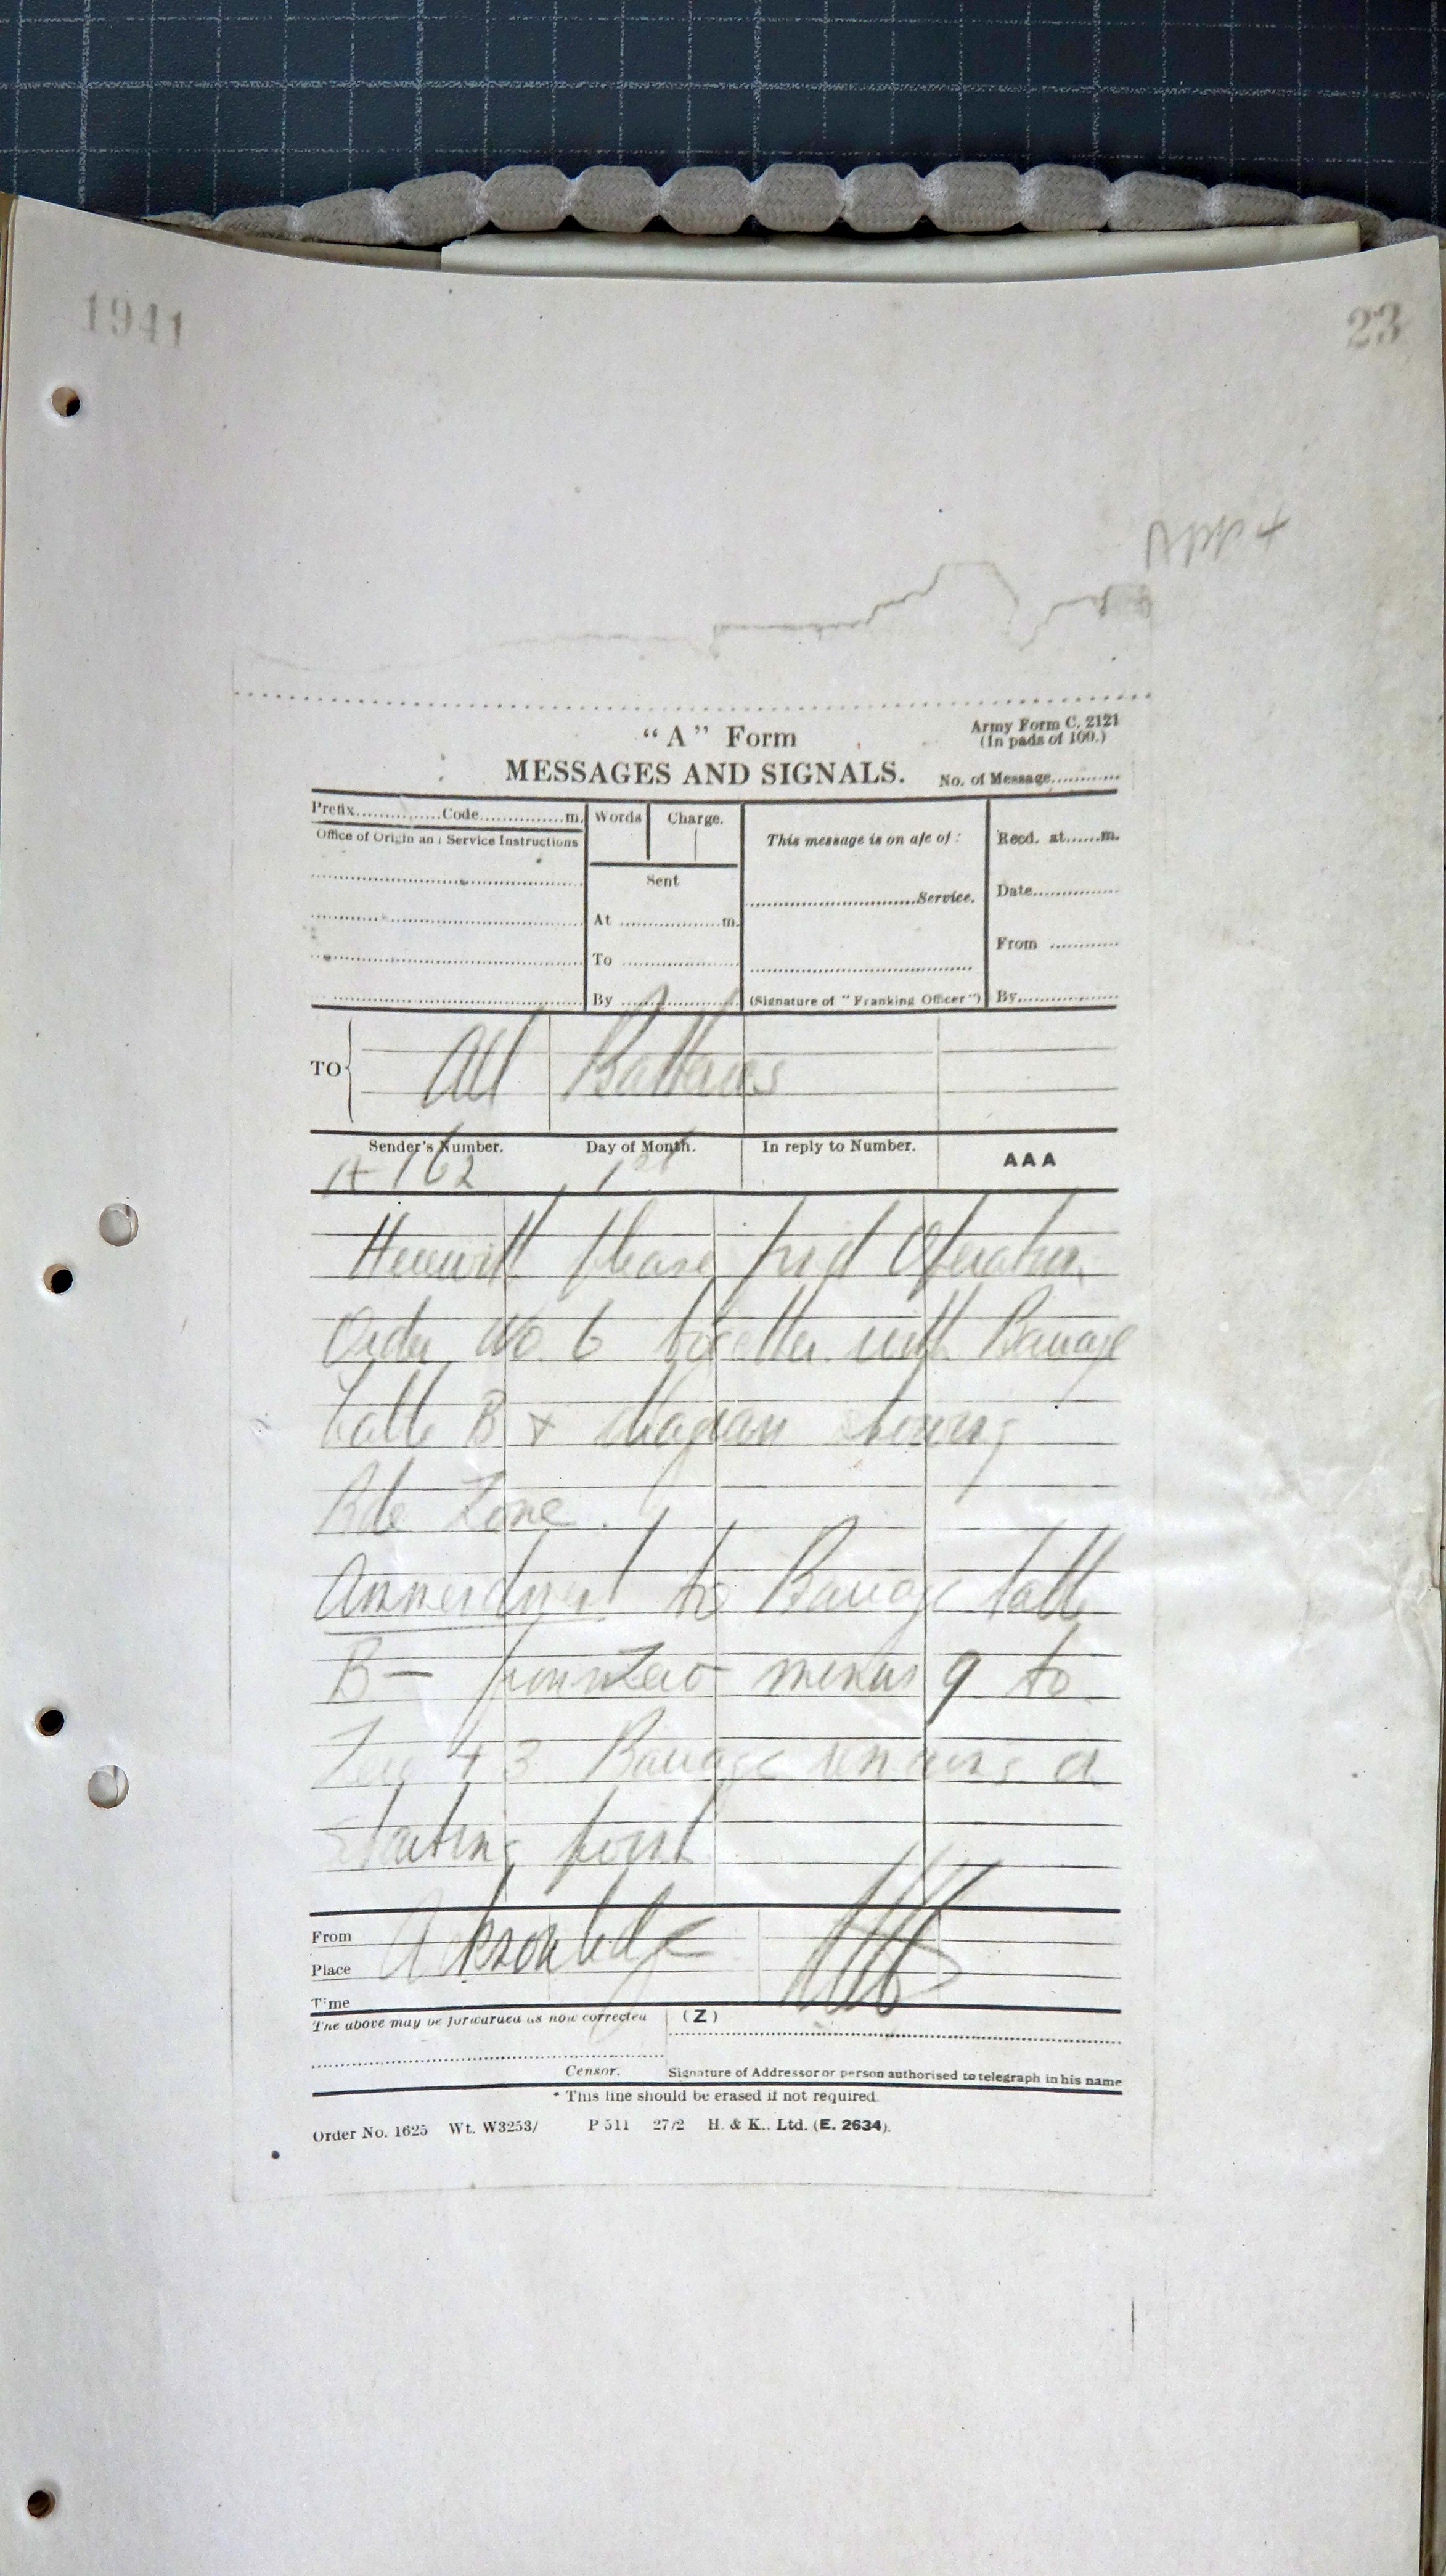 1941
23
App 4
"A" Form
Army Form C. 2121
(In pads of 100.)
MESSAGES AND SIGNALS.
No. of Message............
Prefix...............Code...............m.
Words
Charge.
This message is on a/c of :
Recd. at......m.
Office of Origin and Service Instructions
Sent
...............................Service.
Date...............
At ..................m.
From ............
To .....................
By .....................
(Signature of "Franking Officer")
By..................
TO
All Batteries
Sender's Number.
Day of Month.
In reply to Number.
AAA
A 162
1st
Herewith please find Operation
Order No. 6 together with Barrage
table B + diagram showing
Zone.
Ammendment to Barrage table
B - from Zero minus 9 to
Zero + 3 Barrage remains at
Starting point
From
Place
Time
Acknowledge
The above may be forwarded as now corrected
(Z)
Censor.
Signature of Addressor or person authorised to telegraph in his name
* This line should be erased if not required.
Order No. 1625 Wt. W3253/ P 511 27/2 H. & K., Ltd. (E. 2634).